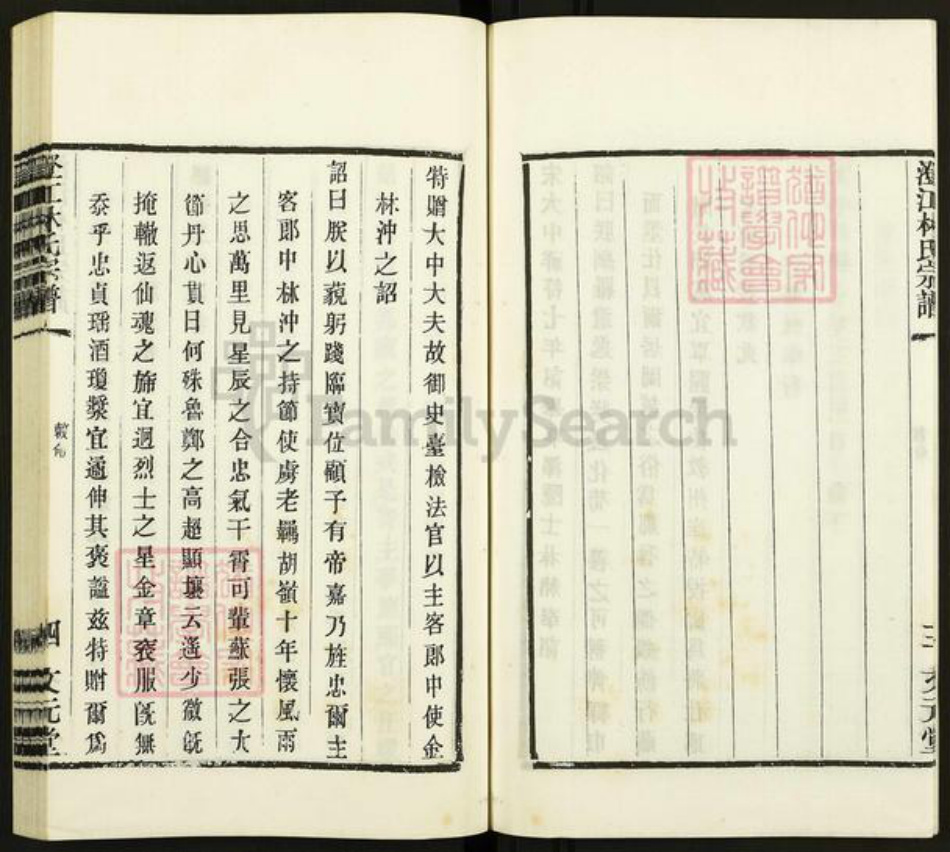 林氏宗譜
文元堂
特贈大中大夫故御史臺檢法官以主客郎中使金
林沖之詔
詔曰朕以藐躬踐臨寶位顧予有帝嘉乃旌忠爾主
客郎中林沖之持節使虜老羈胡嶺十年懷風雨
之思萬里見星辰之合忠氣干霄可輩蘇張之大
節丹心貫日何殊魯鄭之高超顯壤云遙少徽旣
掩轍返仙魂之斾宜迥烈士之星金章衮服旣無
忝乎忠貞瑶酒瓊漿宜遹伸其褒謚兹特贈爾爲
四
文元堂
FamilySearch